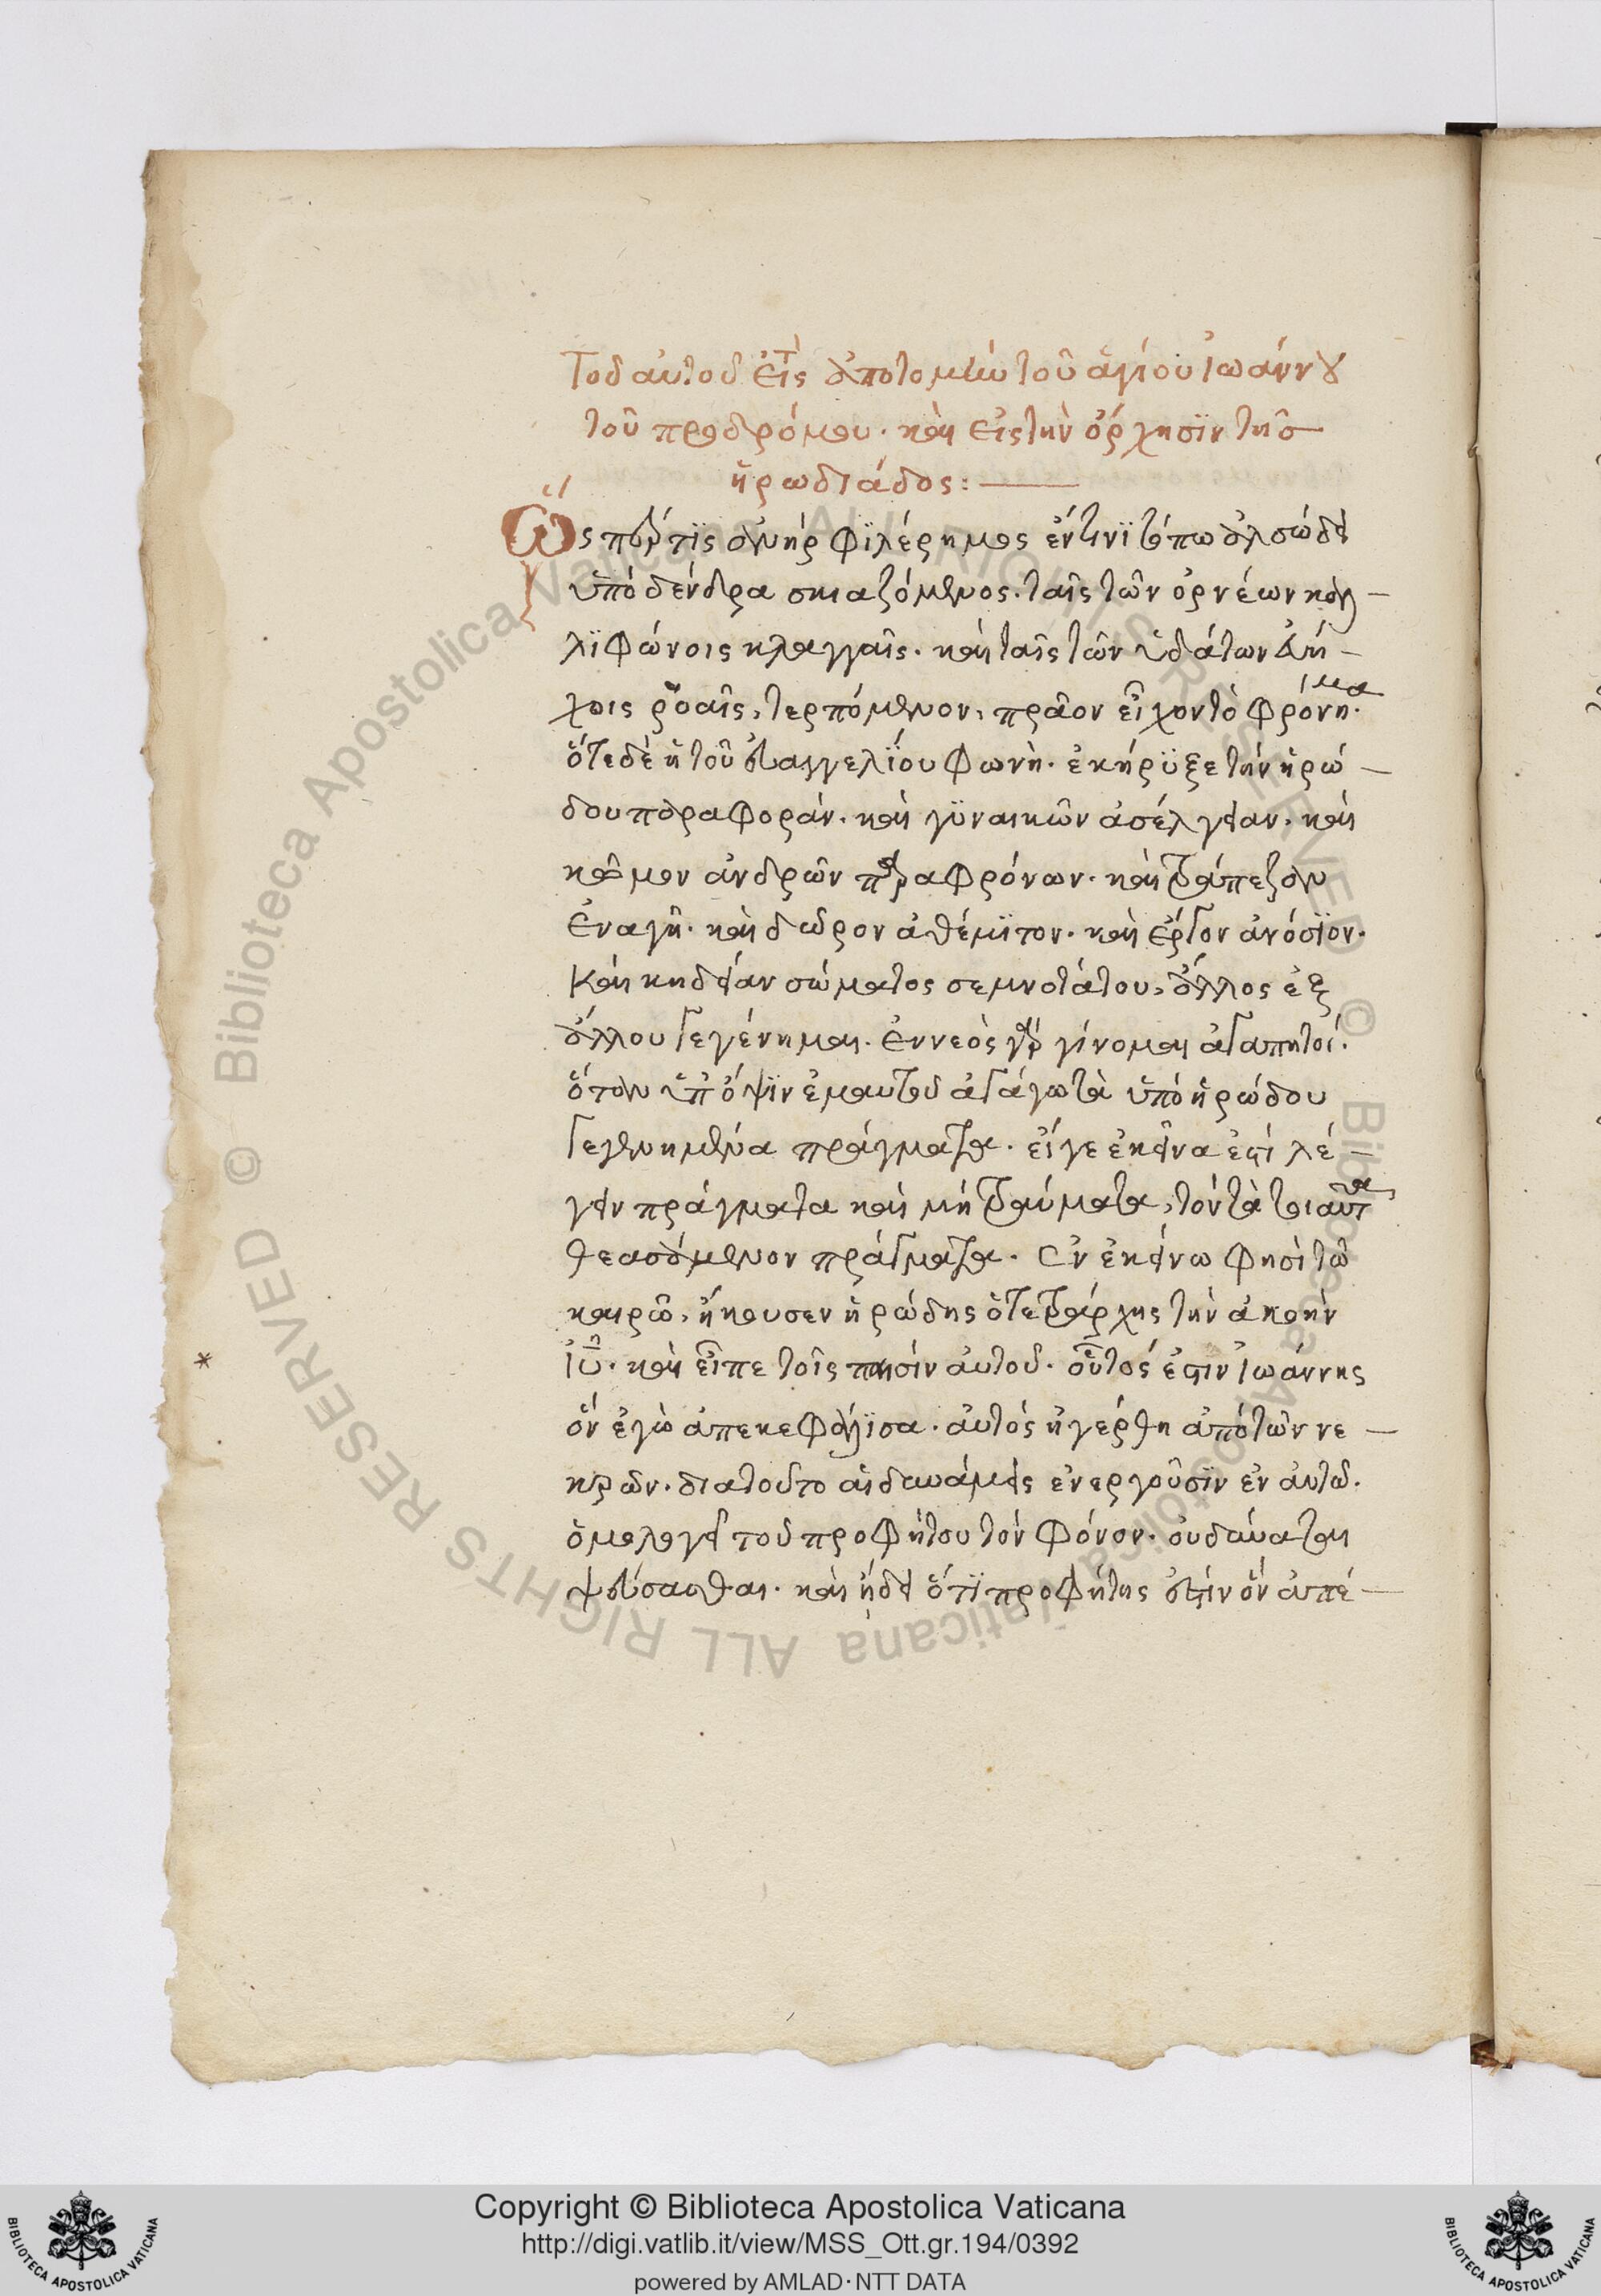 Τοῦ αὐτοῦ εἰς τὴν ἀποτομὴν τοῦ ἁγίου Ἰωάννου
τοῦ προδρόμου· καὶ εἰς τὴν ὄρχησϊν τῆς
ἡρωδιάδος:
Ὥσπέρ τϊς ἀνὴρ φϊλέρημος ἔν τινϊ τόπω ἀλσώδει
ὑπὸ δένδρα σκιαζόμενος· ταῖς τῶν ὀρνέων καλ
λϊφώνοις κλαγγαῖς· καὶ ταῖς τῶν ὑδάτων
χοις ῥοαῖς, τερπόμενον, πρᾶον εἶχον τὸ φρόνημα·
ὅτε δὲ ἡ τοῦ εὐαγγελΐου φωνὴ· ἐκήρϋξε τὴν ἡρώ
δου παραφορὰν· καὶ γϋναικῶν ἀσέλγειαν· καὶ
κῶμον ἀνδρῶν παραφρόνων· καὶ τράπεζαν
ἐναγῆ· καὶ δῶρον ἀθέμϊτον· καὶ ἔργον ἀνόσϊον·
καὶ κηδείαν σώματος σεμνοτάτου, ἄλλος ἐξ
ἄλλου γεγένημαι· ἐννεὸς γὰρ γίνομαι ἀγαπητοί·
ὅταν ὑπ' ὄψϊν ἐμαυτοῦ ἀγάγω τὰ ὑπὸ ἡρώδου
γεγενημένα πράγματα· εἴγε ἐκεῖνα ἐστὶ λέ
γειν πράγματα καὶ μὴ τραύματα, τὸν τὰ τοιαῦτα
θεασάμενον πράγματα· Ἐν ἐκείνω φησὶ τῶ
καιρῶ, ἤκουσεν ἡρώδης ὁ τετράρχης τὴν ἀκοὴν
ἰῦ· καὶ εἶπε τοῖς παισὶν αὐτοῦ· οὗτός ἐστιν Ἰωάννης
ὃν ἐγὼ ἀπεκεφάλϊσα· αὐτὸς ἠγέρθη ἀπὸ τῶν νε
κρῶν· διατοῦτο αἱ δυνάμεις ἐνεργοῦσϊν ἐν αὐτῶ·
ὁμολογεῖ τοῦ προφήτου τὸν φόνον· οὐ δύναται
ψεύσασθαι· καὶ ἤδει ὅτϊ προφήτης ἐστὶν ὃν ἀπέ
Copyright © Biblioteca Apostolica Vaticana
http://digi.vatlib.it/view/MSS_Ott.gr.194/0392
powered by AMLAD·NTT DATA
BIBLIOTECA APOSTOLICA VATICANA
BIBLIOTECA APOSTOLICA VATICANA
© Biblioteca Apostolica Vaticana ALL RIGHTS RESERVED
© Biblioteca Apostolica Vaticana ALL RIGHTS RESERVED